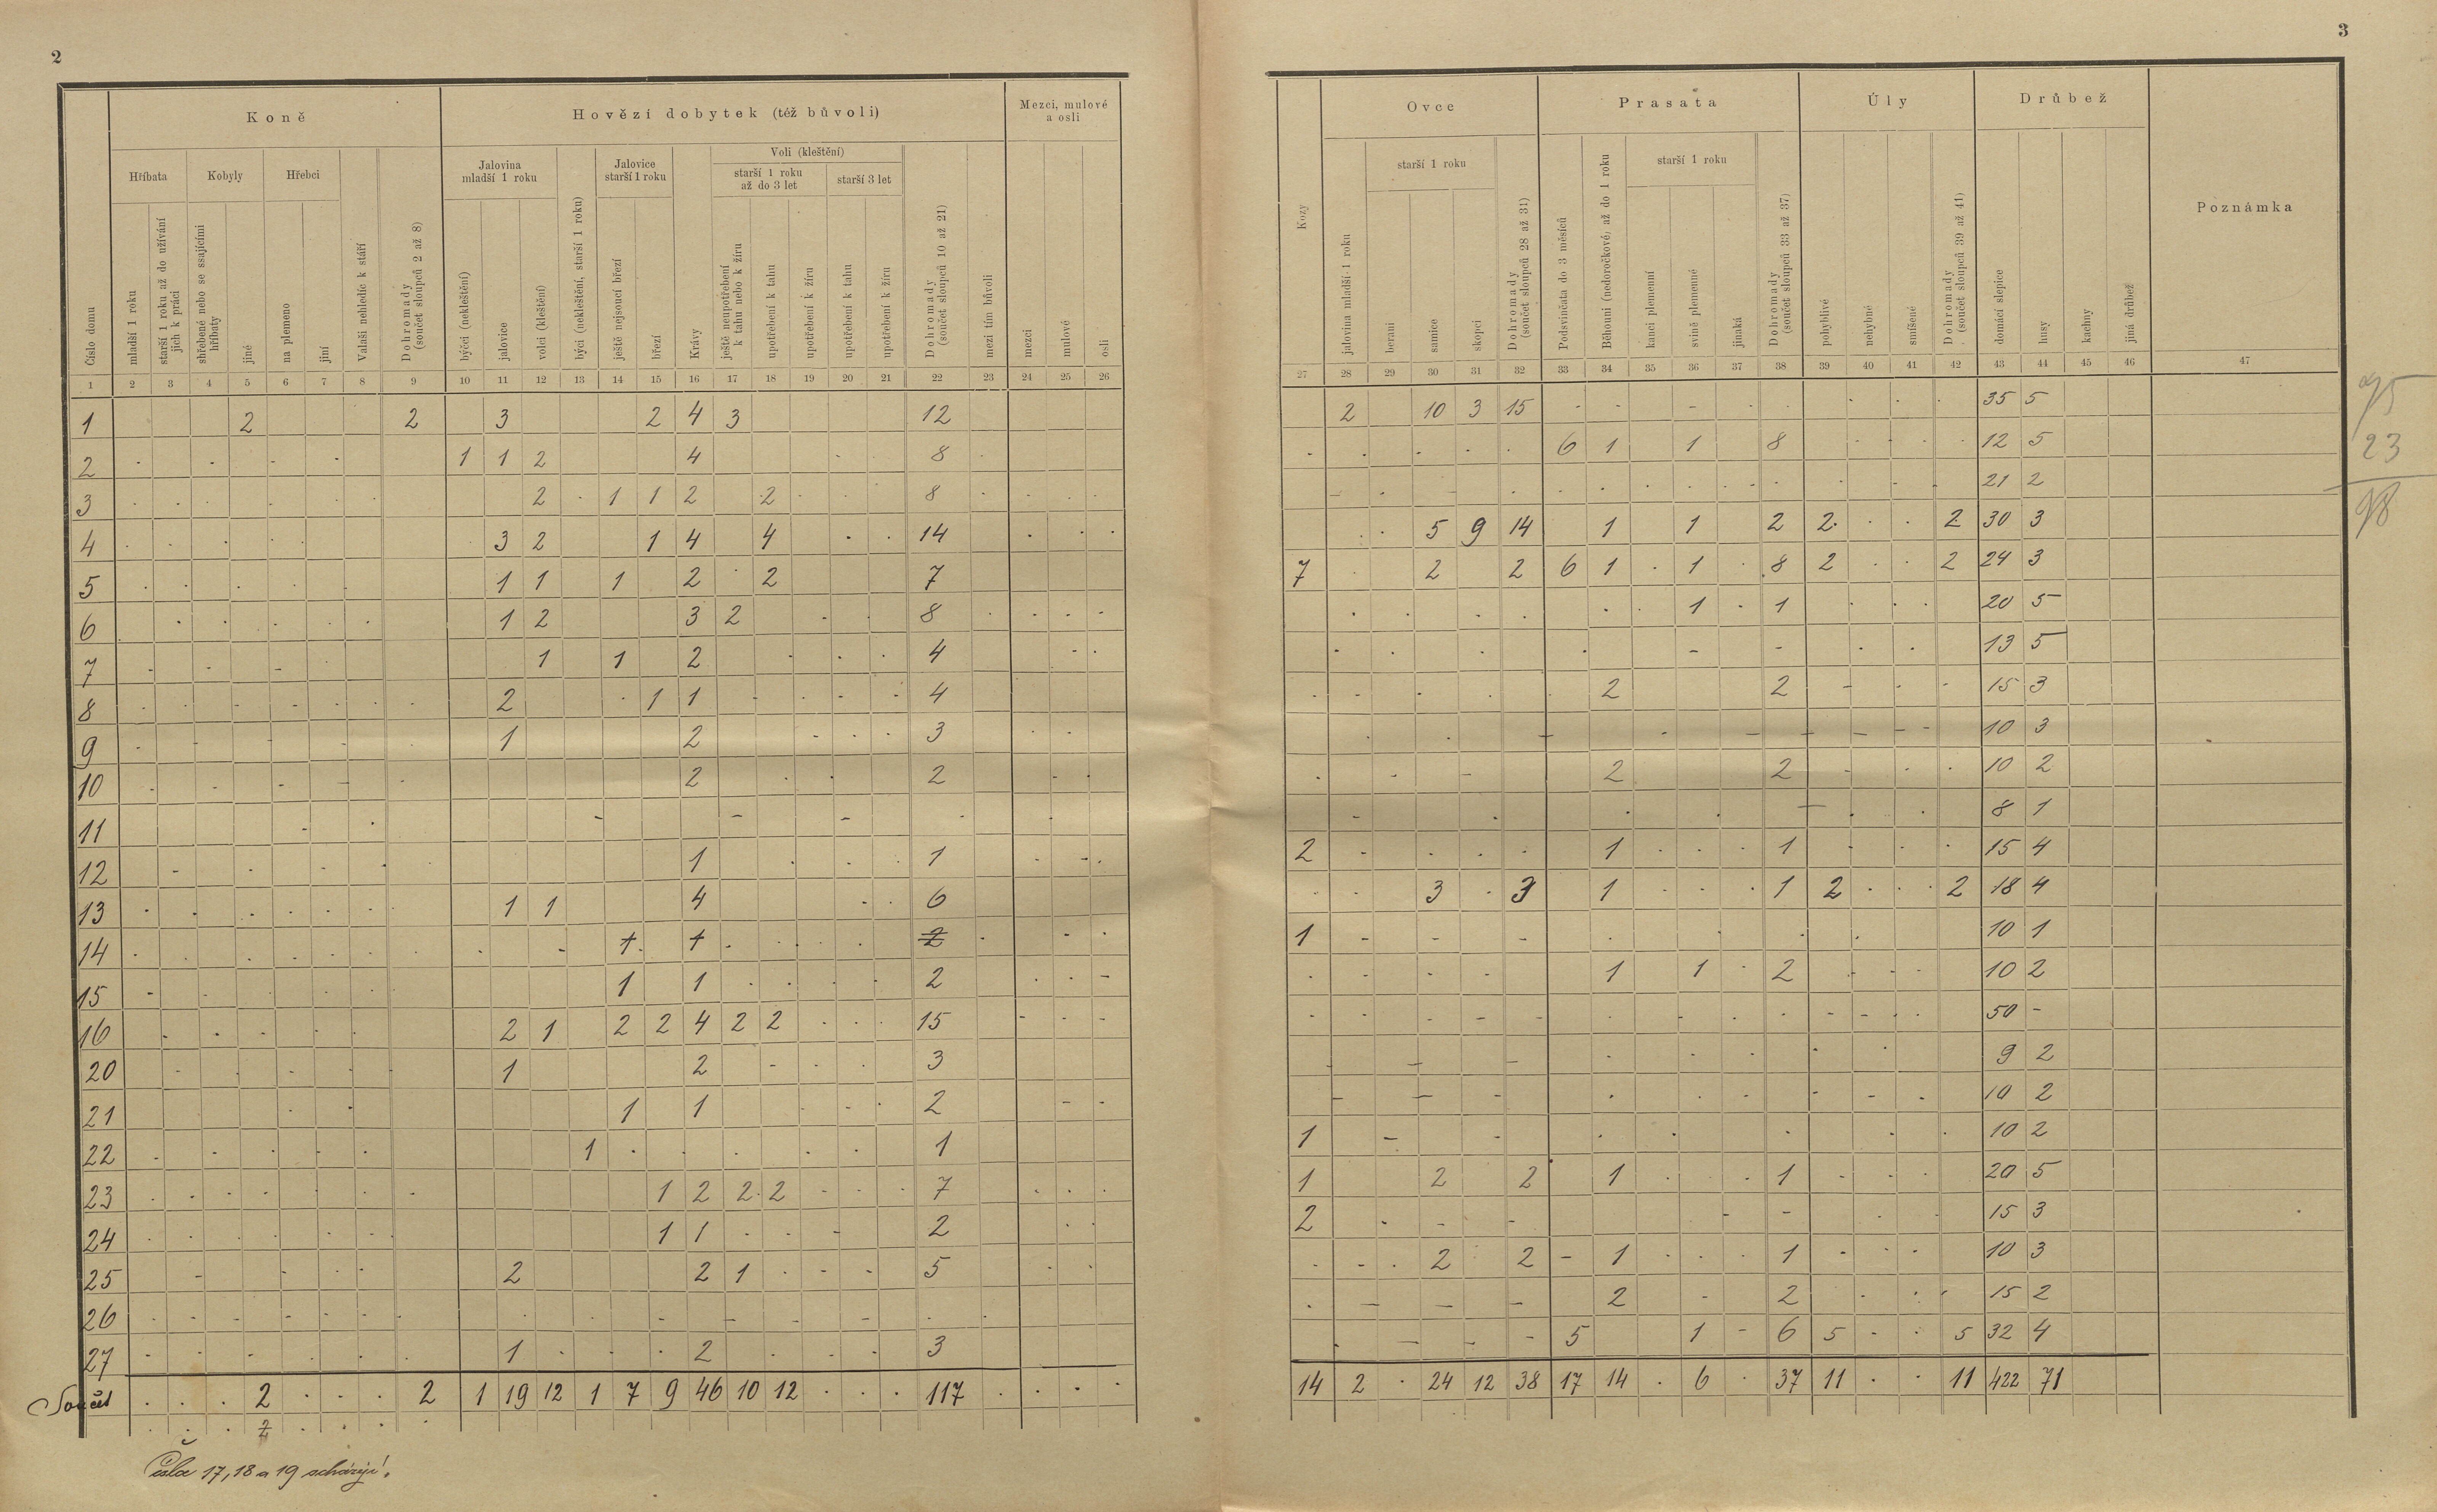 2
Koně
Hovězí dobytek (též bůvoli)
Mezci, mulové a osli
Hříbata
Kobyly
Hřebci
Jalovina mladší 1 roku
Jalovice starší 1 roku
Voli (kleštění)
starší 1 roku až do 3 let
starší 3 let
Číslo domu
mladší 1 roku
starší 1 roku až do užívání jich k práci
shřebené nebo se ssajícími hříbaty
jiné
na plemeno
jiní
Valaši nehledíc k stáří
Dohromady (součet sloupců 2 až 8)
býčci (nekleštění)
jalovice
volci (kleštění)
býci (nekleštění, starší 1 roku)
ještě nejsoucí březí
březí
Krávy
ještě neupotřebení k tahu nebo k žíru
upotřebení k tahu
upotřebení k žíru
upotřebení k tahu
upotřebení k žíru
Dohromady (součet sloupců 10 až 21)
mezi tím bůvoli
mezci
mulové
osli
1 2 3 4 5 6 7 8 9 10 11 12 13 14 15 16 17 18 19 20 21 22 23 24 25 26
1 2 2 3 2 4 3 12
2 1 1 2 4 8
3 2 1 1 2 2 8
4 3 2 1 4 4 14
5 1 1 1 2 2 7
6 1 2 3 2 8
7 1 1 2 4
8 2 1 1 4
9 1 2 3
10 2 2
11
12 1 1
13 1 1 4 6
14 1 1 2
15 1 1 2
16 2 1 2 2 4 2 2 15
20 1 2 3
21 1 1 2
22 1 1
23 1 2 2 2 7
24 1 1 2
25 2 2 1 5
26
27 1 2 3
Součet 2 2 1 19 12 1 7 9 46 10 12 117
2
Čísla 17, 18 a 19 scházejí.
3
Ovce
Prasata
Úly
Drůbež
Poznámka
starší 1 roku
starší 1 roku
Kozy
jalovina mladší 1 roku
berani
samice
skopci
Dohromady (součet sloupců 28 až 31)
Podsvinčata do 3 měsíců
Běhouni (nedoročkové) až do 1 roku
kanci plemenní
svině plemenné
jinaká
Dohromady (součet sloupců 33 až 37)
pohyblivé
nehybné
smíšené
Dohromady (součet sloupců 39 až 41)
domácí slepice
husy
kachny
jiná drůbež
27 28 29 30 31 32 33 34 35 36 37 38 39 40 41 42 43 44 45 46 47
2 10 3 15 35 5
6 1 1 8 12 5
21 2
5 9 14 1 1 2 2 2 30 3
7 2 2 6 1 1 8 2 2 24 3
1 1 20 5
13 5
2 2 15 3
10 3
2 2 10 2
8 1
2 1 1 15 4
3 3 1 1 2 2 18 4
1 10 1
1 1 2 10 2
50 -
9 2
10 2
1 10 2
1 2 2 1 1 20 5
2 15 3
2 2 1 1 10 3
2 2 15 2
5 1 6 5 5 32 4
14 2 24 12 38 17 14 6 37 11 11 422 71
23